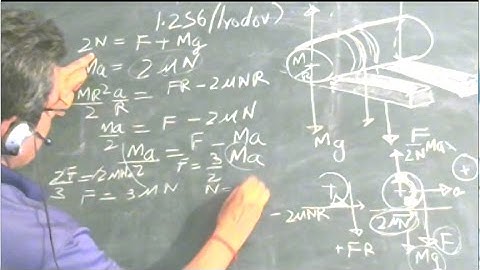 1.256/Irodov)
2N = F + Mg
Ma = 2μN
MR²/2 a/R = FR - 2μNR
Ma/2 = F - 2μN
Ma/2 = F - Ma
F = 3/2 Ma
2F/3 = 2μN
F = 3μN
N =
M
R
Mg
F
2N
Ma
+
a
- 2μNR
+ FR
2μN
F
Mg